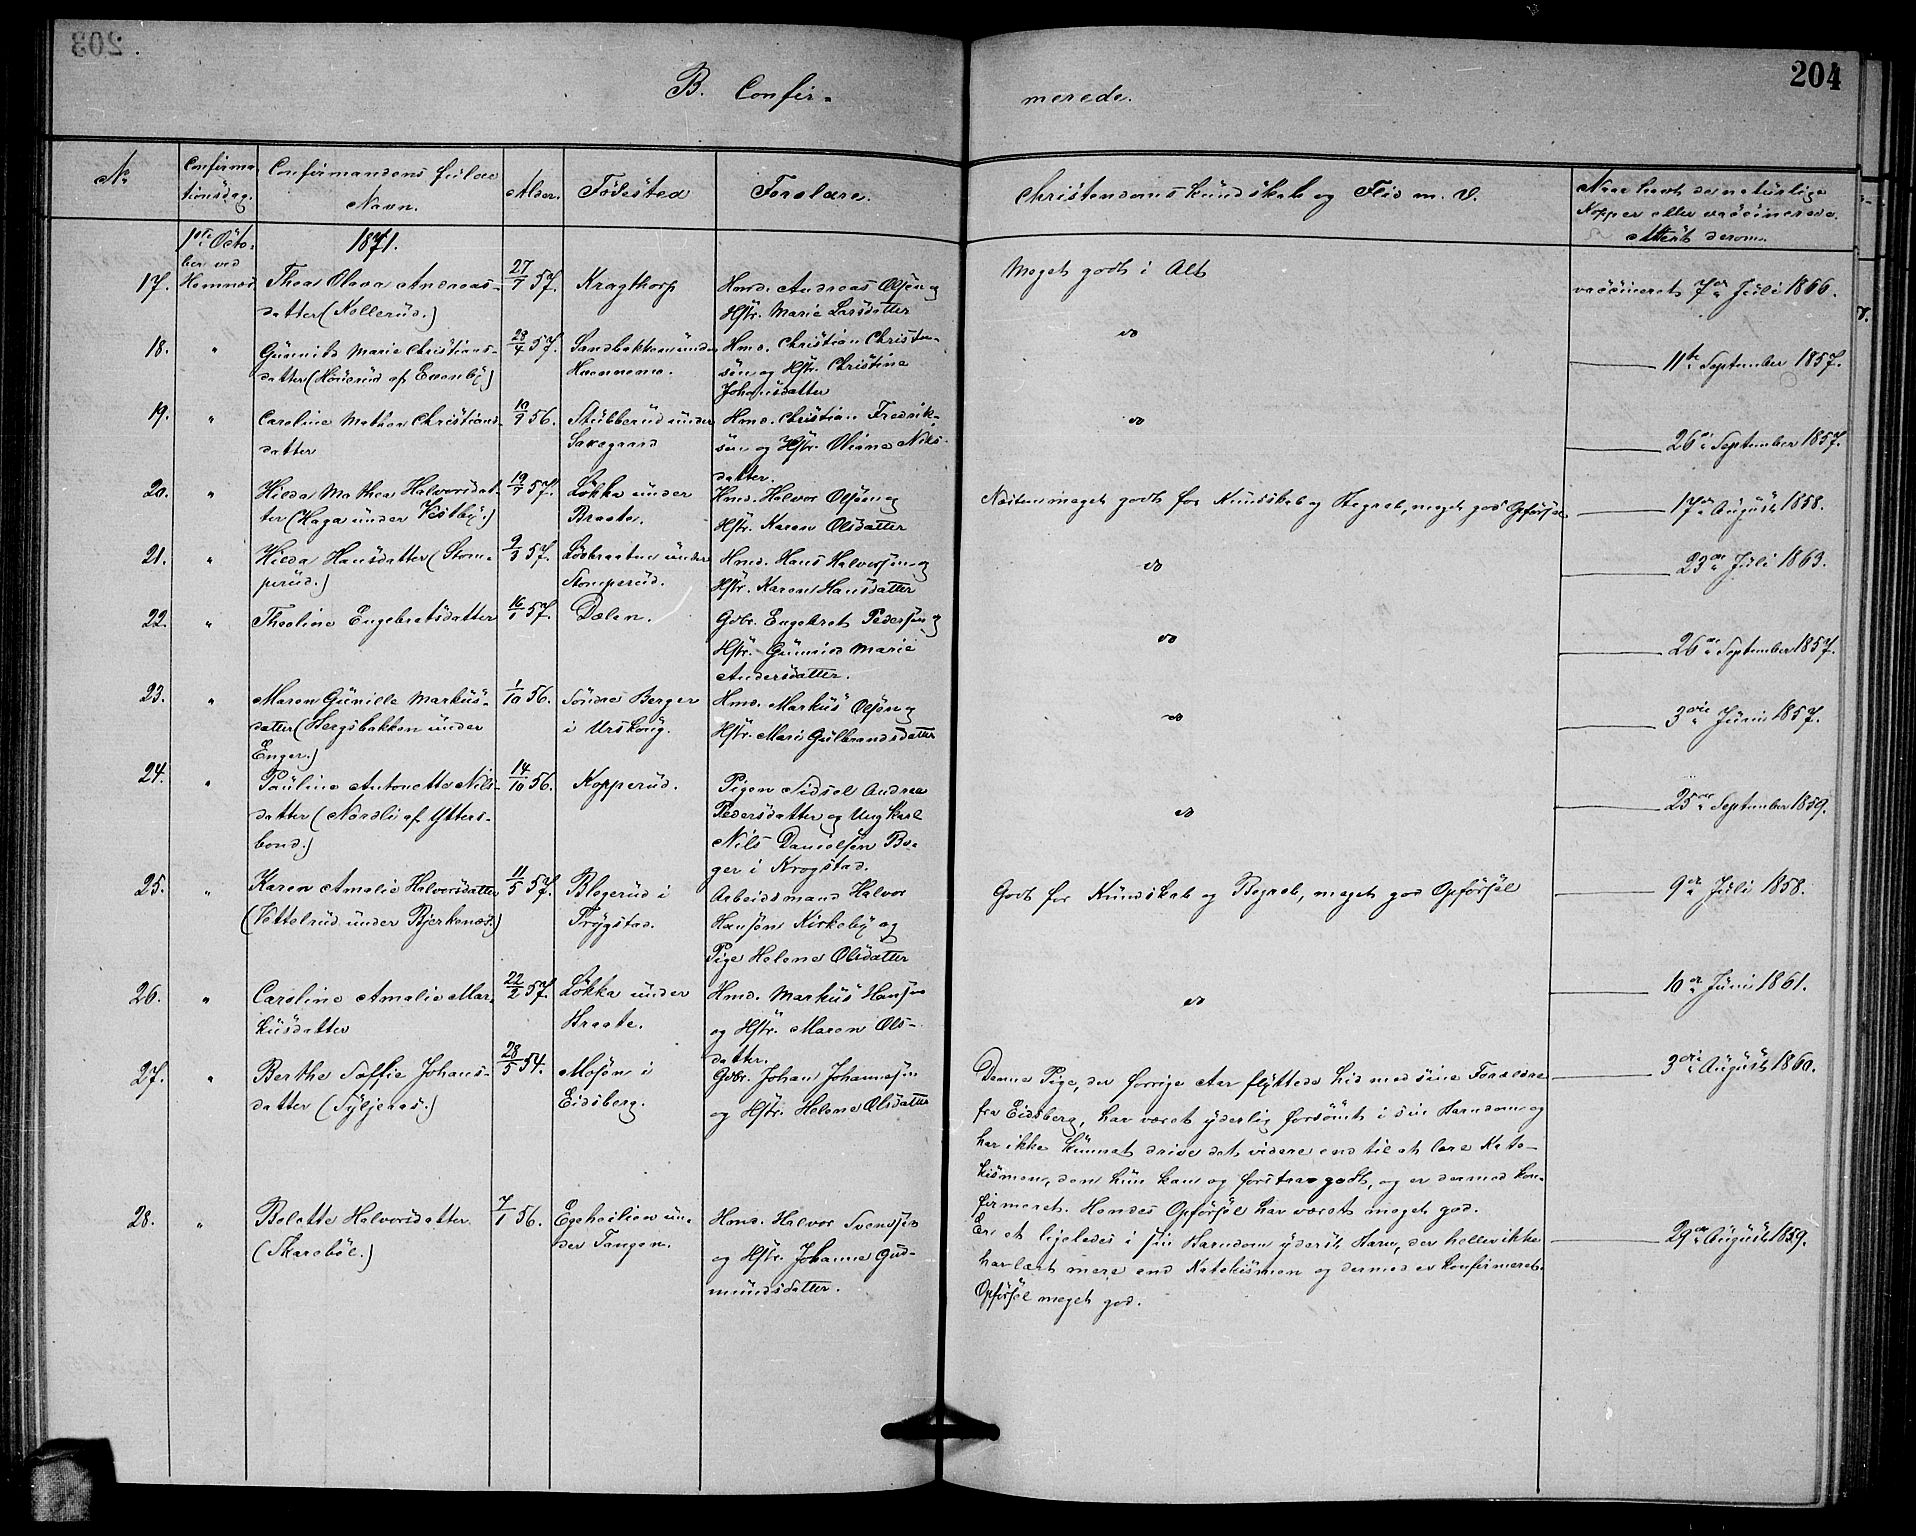 203
204
B. Confir-
merede.
No
Confirma
tionsdag.
Confirmandens fulde
Navn.
Alder.
Fødested
Forældre.
Christendomskundskab og Flid m. v.
Naar havt de naturlige
Kopper eller vaccinerede.
Attest derom.
1ste Octo-
ber ved
Hemnæs
1871.
17.
Thea Olava Andreas-
datter (Kollerud.)
27/7 57.
Kragthorp
Hmd. Andreas Olsen og
Hstr. Marie Larsdatter
Meget godt i Alt
vaccineret 7de Juli 1866.
18.
"
Gunnild Marie Christians-
datter (Houerud af Evenby)
28/4 57.
Sandbakken under
Hmd. Christian Christen-
sen og Hstr. Christine
Johansdatter
do
11te September 1857.
19.
"
Caroline Mathea Christians-
datter
10/9 56.
Stubberud under
Hmd. Christian Fredrik-
sen og Hstr. Oliane Nils-
datter.
do
26de September 1857.
20.
"
Hilda Mathea Halvorsdat-
ter (Haga under Vestby.)
19/7 57.
Løkka under
Braate.
Hmd. Halvor Olsen og
Hstr. Karen Olsdatter
Næsten meget godt for Kundskab og Begreb, meget god Opførsel
17de August 1858.
21.
"
Hilda Hansdatter (Stom-
perud.)
2/3 57.
Løbraaten under
Stomperud.
Hmd. Hans Halvorsen og
Hstr. Karen Hansdatter
do
23de Juli 1863.
22.
"
Theoline Engebretsdatter
16/1 57.
Dælen.
Gdbr. Engebret Pedersen og
Hstr. Gunnild Marie
Andersdatter.
do
26de September 1857.
23.
"
Maren Gunille Markus-
datter (Bergsbakken under
Enger.)
1/10 56.
Søndre Berger
i Urskoug.
Hmd. Markus Olsen og
Hstr. Mari Gulbrandsdatter
do
3die Juni 1857.
24.
"
Pauline Antonette Nils-
datter (Nordli af Ytters-
bond.)
14/10 56.
Kopperud.
Pigen Sidsel Andrea
Pedersdatter og Ung Karl
Nils Danielsen Bø-
ger i Krogstad.
do
25de September 1859.
25.
"
Karen Amalie Halvorsdatter
(Vettelrud under Bjerkenæs.)
11/5 57.
Blegerud i
Trygstad.
Arbeidsmand Halvor
Hansen Kirkeby og
Pige Helene Olsdatter
Godt for Kundskab og Begreb, meget god Opførsel
9de Juli 1858.
26.
"
Caroline Amalie Mar-
kusdatter
22/2 57.
Løkka under
Braate.
Hmd. Markus Hansen
og Hstr. Maren Ols-
datter.
do
10de Juni 1861.
27.
"
Berthe Soffie Johans-
datter (Syljeraas.)
28/5 54.
Mosen i
Eidsberg.
Gdbr. Johan Johannesen
og Hstr. Helene Olsdatter
Denne Pige, der forrige Aar flyttede hid med sine Forældre
fra Eidsberg, har været yderlig forsømt i sin Barndom og
har ikke kunnet drive det videre end til at lære Kate-
kismen, den hun kan og forstaar godt, og er dermed kon-
firmeret. Hendes Opførsel har været meget god.
3die August 1860.
28.
"
Bolette Halvorsdatter
(Skarebøl.)
7/1 56.
Egeheilien un-
der Tangen.
Hmd. Halvor Svendsen
og Hstr. Johanne Gud-
mundsdatter.
Er et ligeledes i sin Barndom Barn, der heller ikke
har lært mere end Katekismen og dermed er konfirmeret.
Opførsel meget god.
29de August 1859.